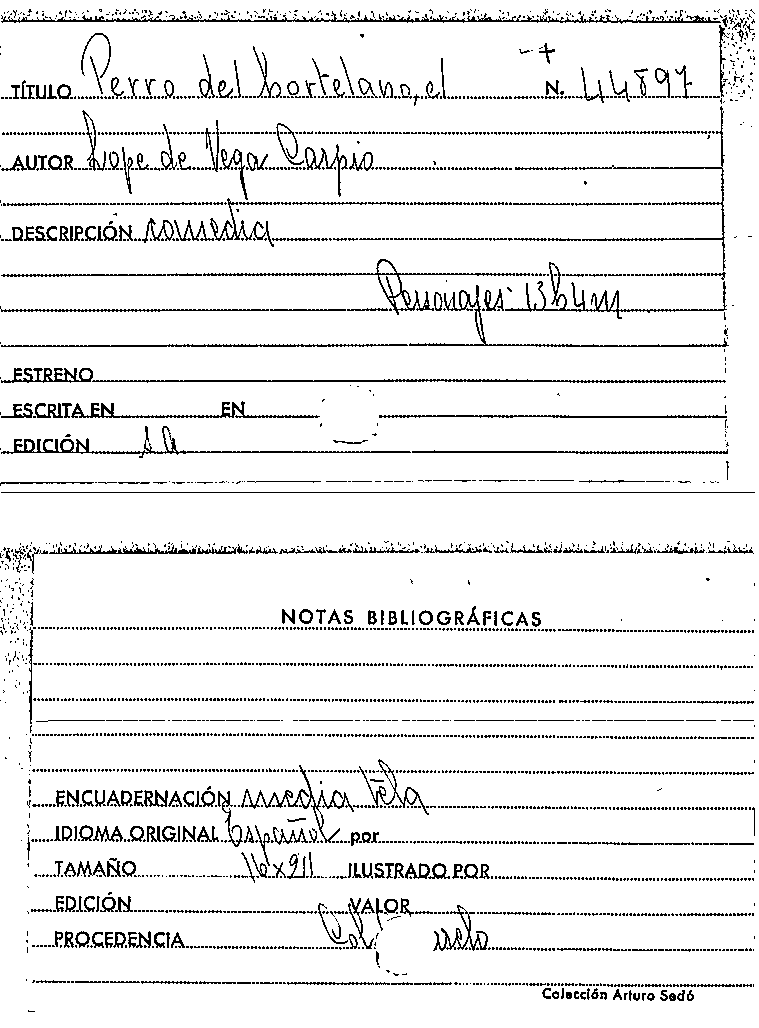 TÍTULO Perro del hortelano, el N. 44897
AUTOR Lope de Vega Carpio
DESCRIPCIÓN comedia
Personajes 13h4m
ESTRENO
ESCRITA EN EN
EDICIÓN s a
NOTAS BIBLIOGRÁFICAS
ENCUADERNACIÓN media tela
IDIOMA ORIGINAL Español por
TAMAÑO ILUSTRADO POR
EDICIÓN VALOR
PROCEDENCIA
Colección Arturo Sedó